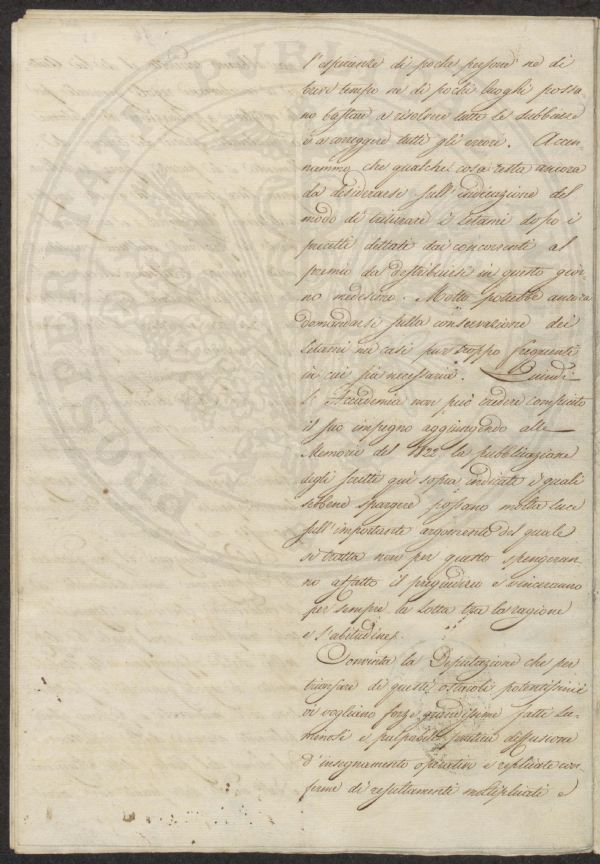 l'esperienze di poche persone nè di
breve tempo nè di pochi luoghi possa-
no bastare a risolvere tutte le dubbiezze
e a correggere tutti gli errori. Accen-
nammo che qualche cosa resta ancora
da desiderarsi sull'indicazione del
modo di trattare i Letami dopo i
precetti dettati dai concorrenti al
premio da distribuirsi in questo gior-
no medesimo. Molto potrebbe ancora
domandarsi sulla conservazione dei
Letami nei casi pur troppo frequenti
in cui sia necessaria. Quindi
l'Accademia non può credere compiuto
il suo impegno aggiungendo alle
Memorie del 1822 la pubblicazione
degli scritti qui sopra indicati i quali
sebbene spargere possano molta luce
sull'importante argomento del quale
si tratta non per questo spengeran-
no affatto il pregiudizio e vinceranno
per sempre la Lotta tra la ragione
e l'abitudine.
Convinta la Deputazione che per
trionfare di questi ostacoli potentissimi
vi vogliono forze grandissime fatti Lu-
minosi e palpabili diffusione
d'insegnamento operativo e replicate con-
ferme di resultamenti moltiplicati e
PROSPERITATI PUBLICAE